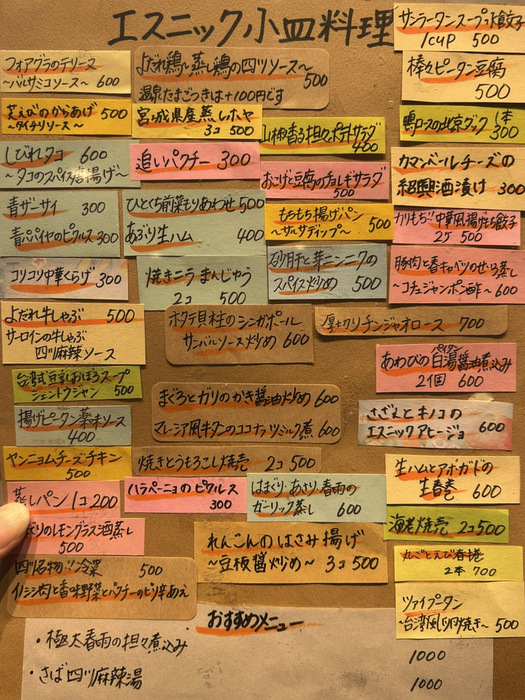 エスニック小皿料理
サンラータンスープ水餃子
1cup 500
フォアグラのテリーヌ
〜バルサミコソース〜 600
よだれ鶏〜蒸し鶏の四川ソース〜
500
温泉たまごつきは+100円です
棒々ピータン豆腐
500
芝えびのからあげ 500
〜タイチリソース〜
宮城県産蒸しホヤ
3コ 500
山椒香る担々ポテトサラダ
400
鴨ロースの北京ダック 1本
300
しびれタコ 600
〜タコのスパイス唐揚げ〜
追いパクチー 300
おこげと豆腐のチョレギサラダ
500
カマンベールチーズの
紹興酒漬け 300
青ザーサイ 300
青パパイヤのピクルス 300
ひとくち前菜もりあわせ 500
あぶり生ハム 400
もちもち揚げパン 500
〜サルサディップ〜
カリもち!!中華風揚げもち餃子
2コ 500
コリコリ中華くらげ 300
焼きニラまんじゅう
2コ 500
砂肝と芽ニンニクの
スパイス炒め 500
豚肉と春キャベツのせいろ蒸し
〜コチュジャンポン酢〜 600
よだれ牛しゃぶ 500
サーロインの牛しゃぶ
四川麻辣ソース
ホタテ貝柱のシンガポール
サンバルソース炒め 600
厚切りチンジャオロース 700
あわびの白湯醤油煮込み
パイタン
2個 600
台湾式豆乳おぼろスープ
シェントウジャン 500
まぐろとガリのかき醤油炒め 600
マレーシア風牛タンのココナッツミルク煮 600
さざえとキノコの
エスニックアヒージョ 600
揚げピータン薬味ソース
400
ヤンニョムチーズチキン
500
焼きとうもろこし焼売 2コ 500
生ハムとアボガドの
生春巻 600
蒸しパン 1コ 200
ハラペーニョのピクルス
300
はまぐり、あさり、春雨の
ガーリック蒸し 600
海老焼売 2コ 500
のレモングラス酒蒸し
500
れんこんのはさみ揚げ
〜豆板醤炒め〜 3コ 500
丸ごとえび春捲
2本 700
四川名物!!冷菜 500
イノシシ肉と香味野菜とパクチーのピリ辛あえ
ツァイプータン
〜台湾風玉子焼き〜 500
おすすめメニュー
・極太春雨の担々煮込み 1000
・さば四川麻辣湯 1000